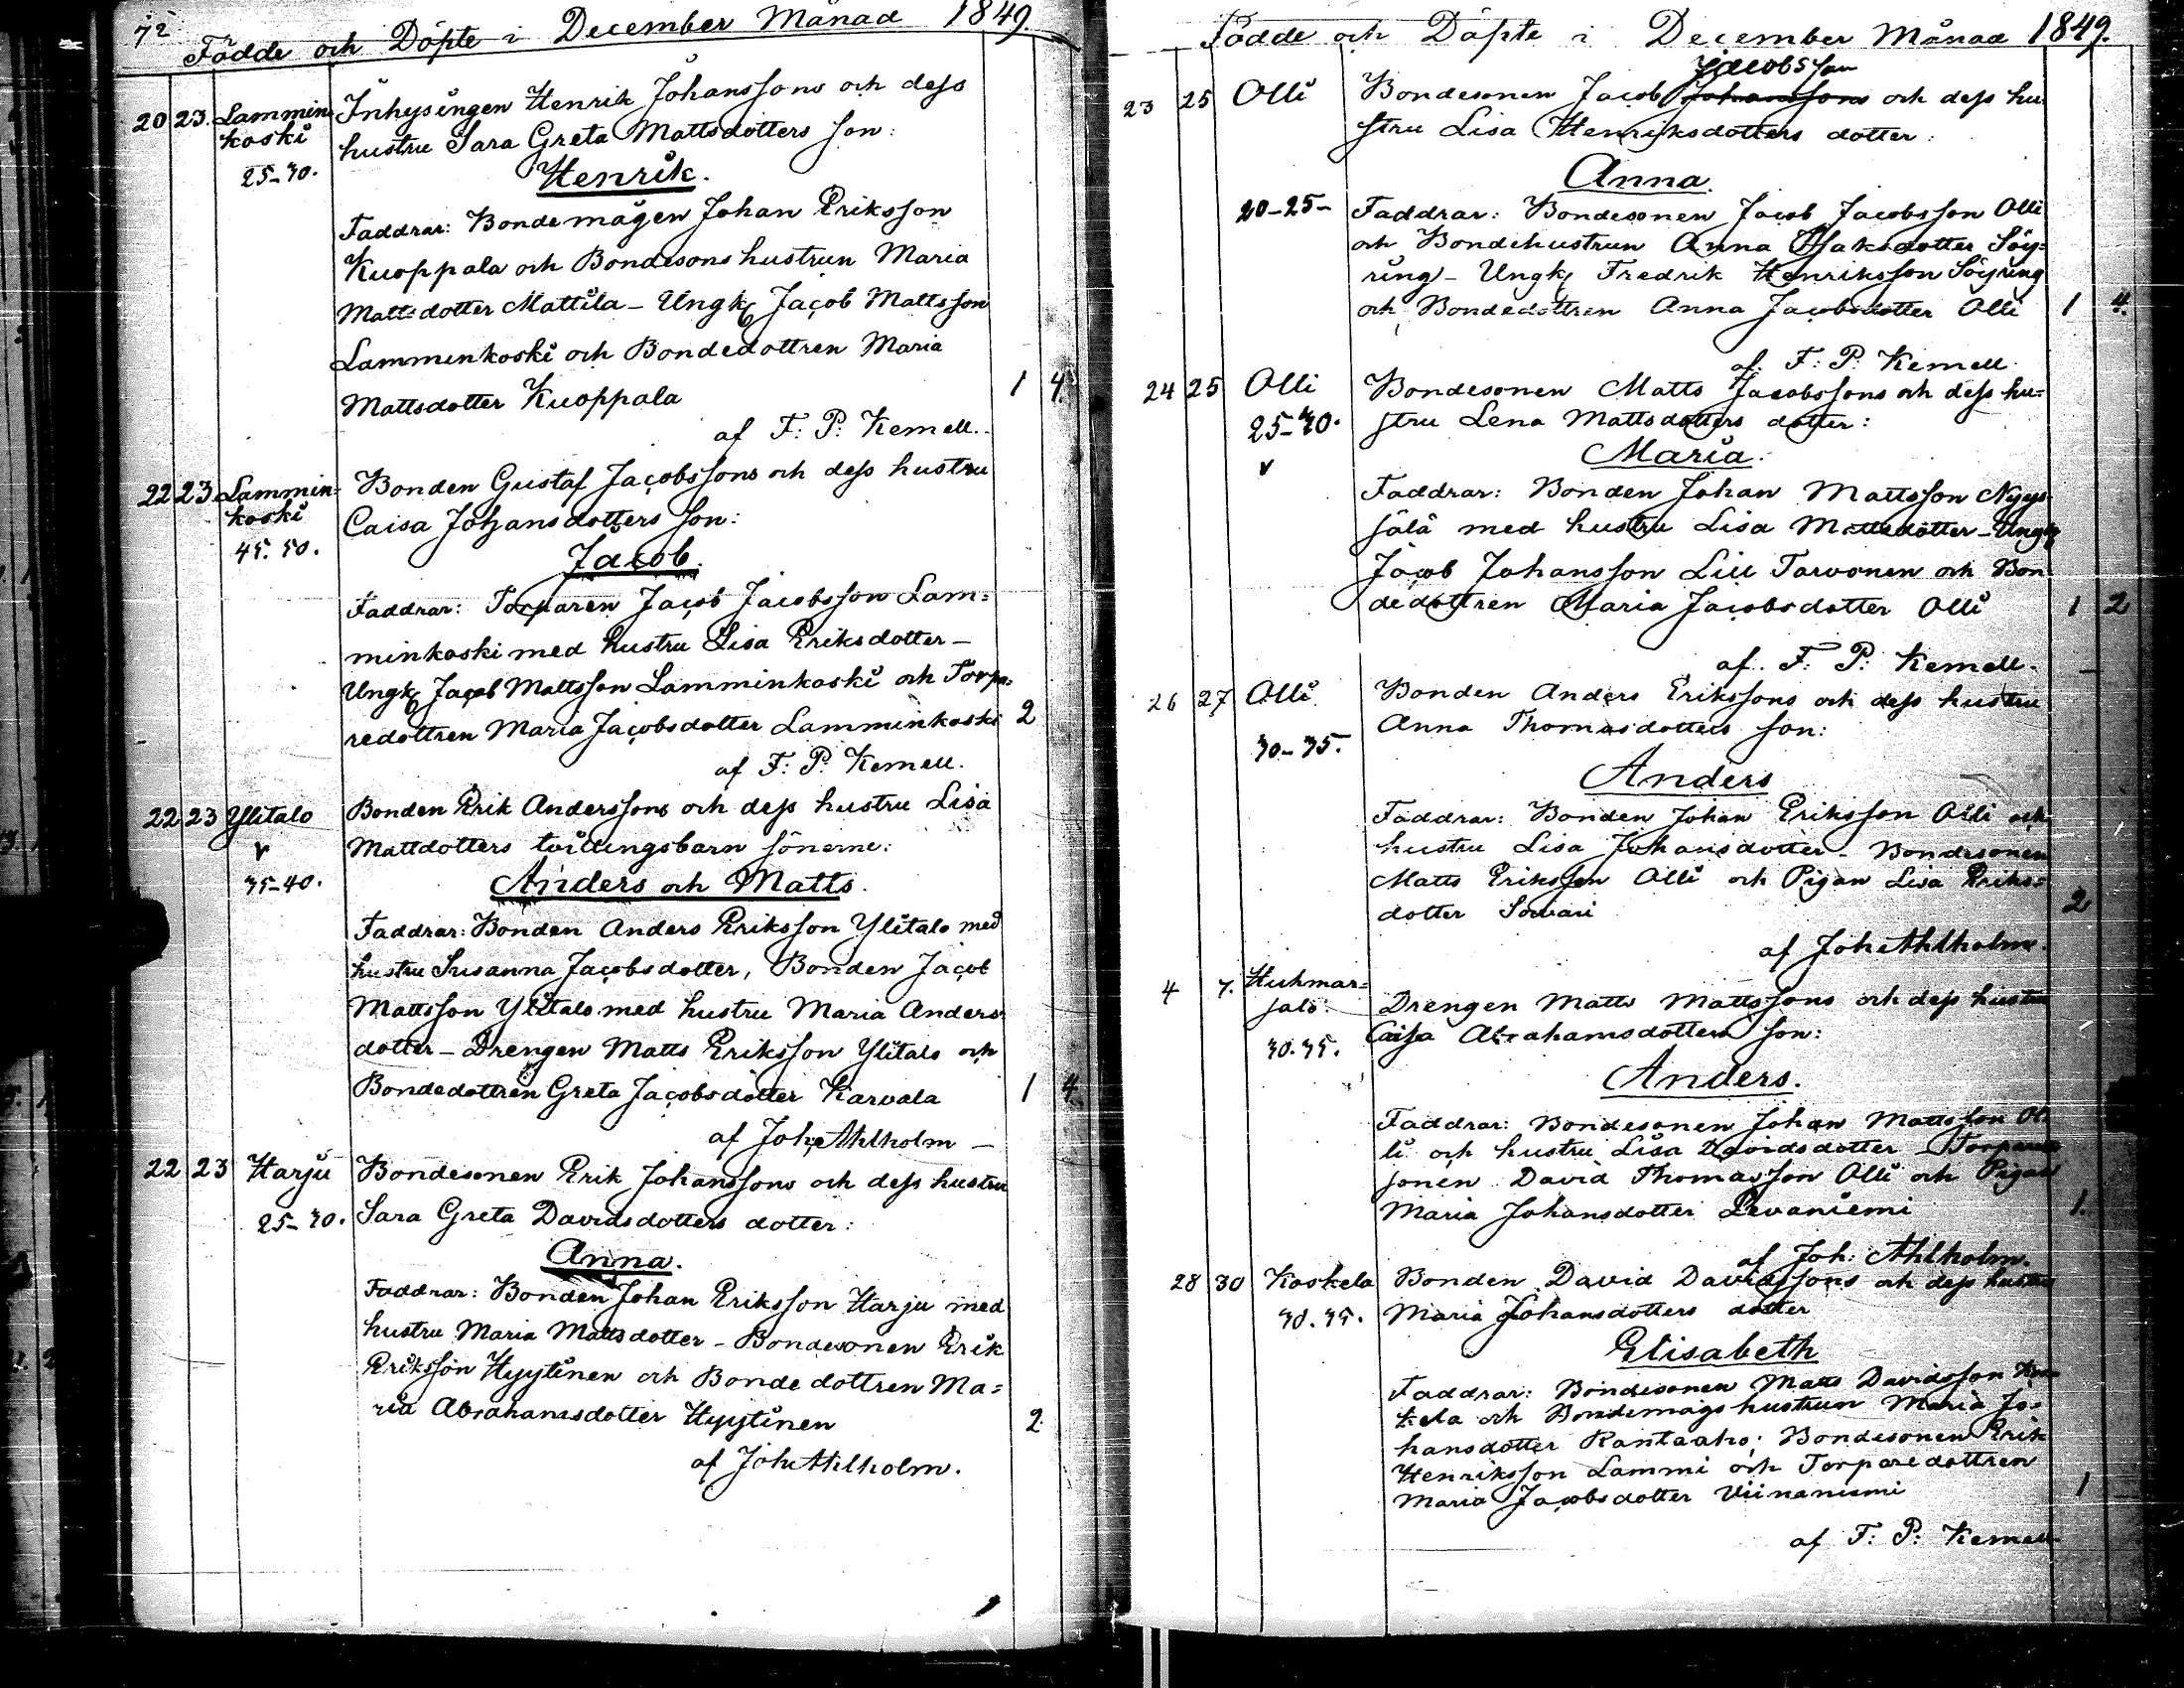 72
Födde och Döpte i December Månad 1849.
20 23. Lammin= Inhysingen Henrik Johanssons och dess
koski hustru Sara Greta Mattsdotters son:
25-30.
Henrik.
Faddrar: Bondemågen Johan Eriksson
Kuoppala och Bondesons hustrun Maria
Mattsdotter Mattila - Ungk Jacob Mattsson
Lamminkoski och Bondedottren Maria
Mattsdotter Kuoppala 1 4
af F: P: Kemell.
22 23 Lammin= Bonden Gustaf Jacobssons och dess hustru
koski Caisa Johansdotters son:
45. 50.
Jacob.
Faddrar: Torparen Jacob Jacobsson Lam=
minkoski med hustru Lisa Eriksdotter -
Ungk Jacob Mattsson Lamminkoski och Torpa=
redottren Maria Jacobsdotter Lamminkoski 2
af F: P: Kemell.
22 23 Ylitalo Bonden Erik Anderssons och dess hustru Lisa
v Mattdotters tvillingsbarn sönerne:
35-40. Anders och Matts.
Faddrar: Bonden Anders Eriksson Ylitalo med
hustru Susanna Jacobsdotter, Bonden Jacob
Mattsson Ylitalo med hustru Maria Anders
dotter - Drengen Matts Eriksson Ylitalo och
Bondedottren Greta Jacobsdotter Karvala 1 4
af Joh Ahlholm -
22 23 Harju Bondesonen Erik Johanssons och dess hustru
25-30. Sara Greta Davidsdotters dotter:
Anna.
Faddrar: Bonden Johan Eriksson Harju med
hustru Maria Mattsdotter - Bondesonen Erik
Eriksson Hyytinen och Bondedottren Ma=
ria Abrahamsdotter Hyytinen 2
af Joh Ahlholm.
Födde och Döpte i December Månad 1849.
Jacobsson
23 25 Olli Bondesonen Jacob Johanssons och dess hu
stru Lisa Henriksdotters dotter:
Anna.
20-25- Faddrar: Bondesonen Jacob Jacobsson Olli
och Bondehustrun Anna Isaksdotter Söy=
ring - Ungk Fredrik Henriksson Söyring
och Bondedottren Anna Jacobsdotter Olli 1 4.
af F: P: Kemell.
24 25 Olli Bondesonen Matts Jacobssons och dess hu=
25-30. stru Lena Mattsdotters dotter:
v
Maria.
Faddrar: Bonden Johan Mattsson Nyys
sölä med hustru Lisa Mattsdotter - Ungk
Jacob Johansson Lill Tarvonen och Bon
dedottren Maria Jacobsdotter Olli 1 2
af. F: P: Kemell.
26 27 Olli Bonden Anders Erikssons och dess hustru
Anna Thomasdotters son:
30-35.
Anders
Faddrar: Bonden Johan Eriksson Olli och
hustru Lisa Johansdotter - Bondesonen
Matts Eriksson Olli och Pigan Lisa Eriks=
dotter 2
af Joh Ahlholm.
4 7. Huhmar=
salo: Drengen Matts Mattssons och dess hustru
30.35. Caisa Abrahamsdotters son:
Anders.
Faddrar: Bondesonen Johan Mattsson Ol
li och hustru Lisa Davidsdotter Torpare
sonen David Thomasson Olli och Pigan
Maria Johansdotter Levaniemi 1.
af Joh: Ahlholm.
28 30 Koskela Bonden David Davidssons och dess hustru
30.35. Maria Johansdotters dotter
Elisabeth
Faddrar: Bondesonen Matts Davidsson Kos
kela och Bondemågs hustrun Maria Jo=
hansdotter Rantaaho; Bondesonen Erik
Henriksson Lammi och Torparedottren
Maria Jacobsdotter Viinaniemi 1
af F: P: Kemell